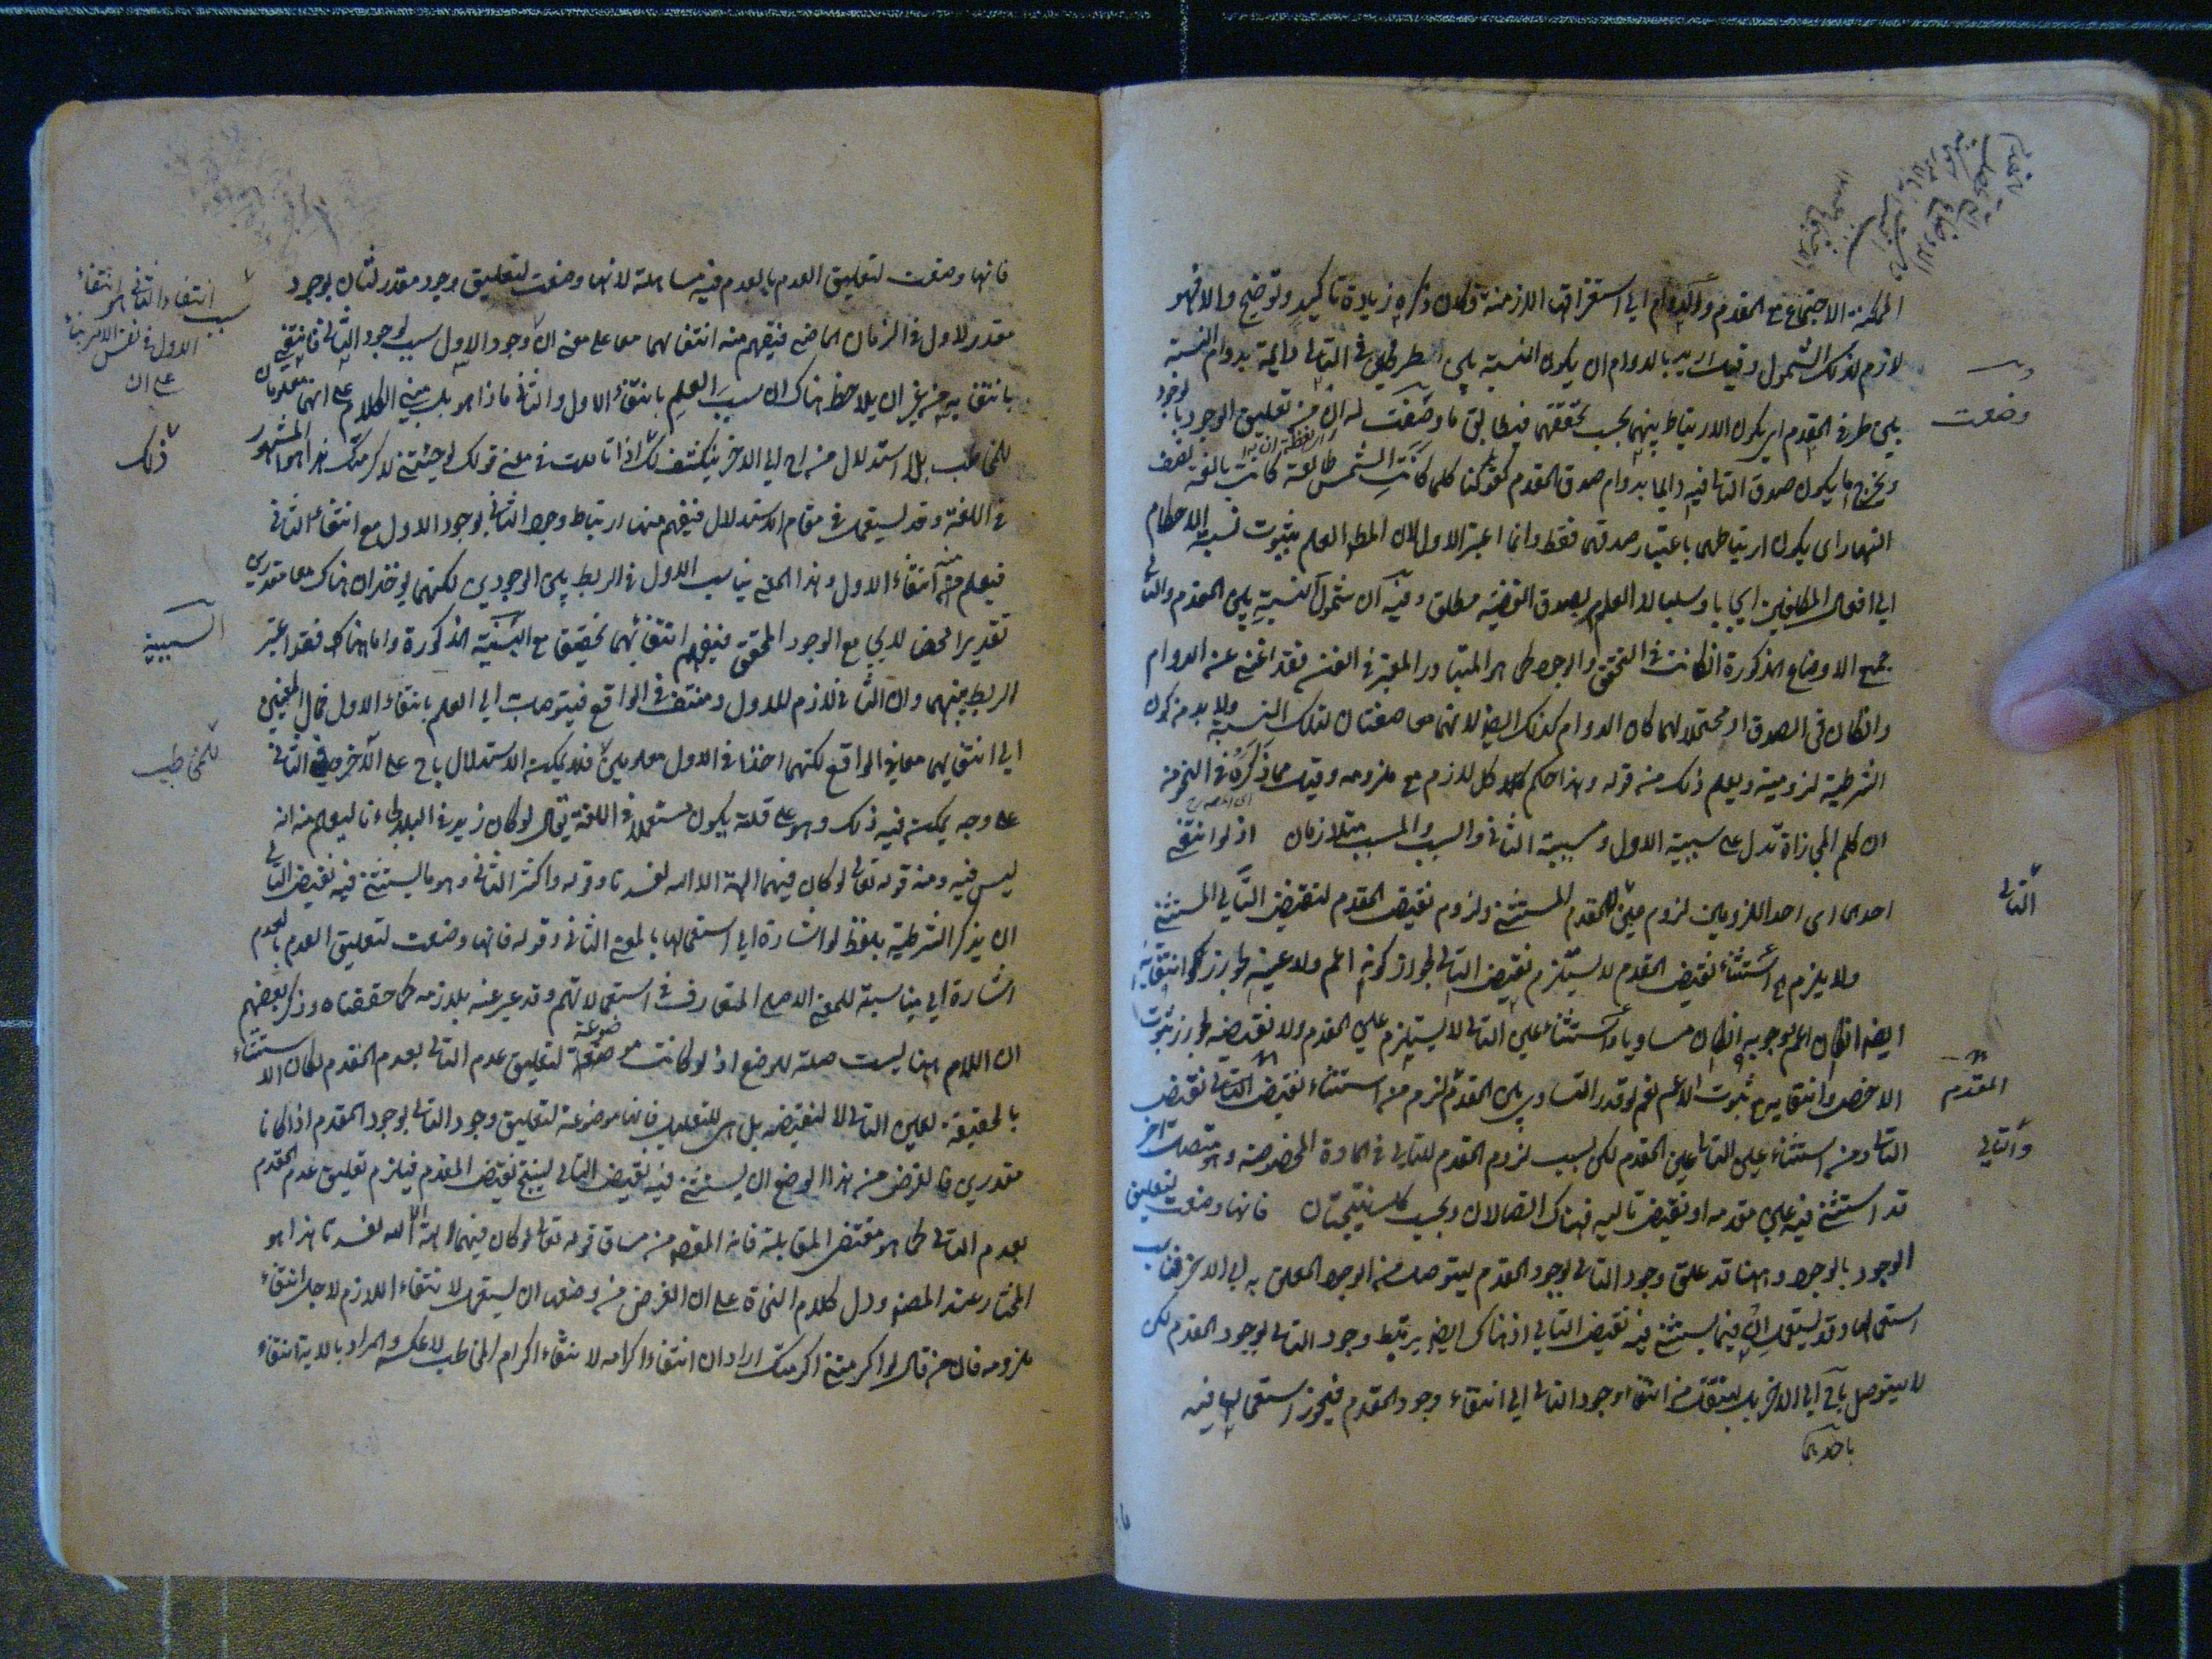 الممكنة الاجتماع مع المقدم والدوام اي استغراق الازمنة فكان ذكره زيادة تاكيد وتوضيح والا فهو
لازم لذلك الشمول وقيل اريد بالدوام ان يكون النسبة بين الطرفين في التالي دايمة بدوام النسبة
بين طرفي المقدم اي يكون الارتباط بينهما بحسب تحققهما فيطابق ما وضعت له ان من تعليق الوجود بالوجود
ويخرج ما يكون صدق التالي فيه دايما بدوام صدق المقدم كقولنا كلما كانت الشمس طالعة كانت
النهار اي يكون ارتباطهما باعتبار صدقهما فقط وانما اعتبر الاول لان المط العلم بثبوت نسبة الاحكام
الى افعال المكلفين ايجابا وسلبا لا العلم بصدق القضية مطلق وفيه ان شمول النسبة بين المقدم والتالي
جميع الاوضاع المذكورة ان كانت في التحقق والوجود كما هو المتبادر المعتبر في الفن فقد اغنى عنه الدوام
وان كان في الصدق او محتملا لهما كان الدوام كذلك ايضا لانهما معا صفتان لتلك النسبة ولا بد من كون
الشرطية لزومية ويعلم ذلك من قوله وهذا حكم كل لازم مع ملزومه وقيل مما ذكره في النحو من
ان كلم المجازاة تدل على سببية الاول ومسببية الثاني والسبب والمسبب متلازمان اذ لو انتفى
احدهما اي احد اللزومين لزوم عين المقدم المستثنى ولزوم نقيض المقدم لنقيض التالي المستثنى
ولا يلزم استثناء نقيض المقدم لا يستلزم نقيض التالي لجواز كونه اعم ولا عينه لجواز انتفائه
ايضا ان كان اعم بوجوبه ان كان مساويا واستثناء عين التالي لا يستلزم عين المقدم ولا نقيضه لجواز ثبوت
الاخص وانتفائه مع ثبوت الاعم نعم لو قدر التساوي بين المقدم لزم من استثناء نقيض المقدم نقيض
التالي ومن استثناء عين التالي عين المقدم لكن بسبب لزوم المقدم للتالي في المادة المخصوصة وهو متصلة اخرى
قد استثنى فيه عين مقدمه او نقيض تاليه فهناك اتصالان وبحسب كل نتيجتان فانها وضعت لتعليق
الوجود بالوجود وههنا قد علق وجود التالي بوجود المقدم ليتوصل من الوجود المعلق به الى الاخر فناسب
استعمالها وقد يستعمل ان فيما يستثنى فيه نقيض التالي اذ هناك ايضا يرتبط وجود التالي بوجود المقدم لكن
لا ليتوصل الى الاخر بل لينتقل من انتفاء وجود التالي الى انتفاء وجود المقدم فيجوز استعمالها فيه
باحدهما
وضعت
التالي
المقدم
والتالي
فانها وضعت لتعليق العدم بالعدم فيه مساهلة لانها وضعت لتعليق وجود مقدر لثان بوجود
مقدر لاول في الزمان الماضي فيفهم منه انتفاهما معا على معنى ان وجود الاول سبب لوجود الثاني فانتفى
بانتفائه من غير ان يلاحظ هناك ان سبب العلم بانتفاء الاول والثاني ماذا هو بل مبنى الكلام على انهما معلومان
للمخاطب بلا استدلال من احدهما الى الاخر ينكشف لك اذا تاملت في معنى قولك لو جئتني لاكرمتك هذا هو المشهور
في اللغة وقد يستعمل في مقام الاستدلال فيفهم منها ارتباط وجود الثاني بوجود الاول مع انتفاء الثاني
فيعلم منه انتفاء الاول وهذا المعنى يناسب الاول في الربط بين الوجودين لكنهما يوخذان هناك معا مقدرين
تقديرا محضا لا يجامع الوجود المحقق فيفهم انتفائهما تحقيق مع السببية المذكورة واما هناك فقد اعتبر
الربط بينهما وان الثاني لازم للاول ومنتف في الواقع فيتوصل به الى العلم بانتفاء الاول فمآل المعنيين
الى انتفائهما معا في الواقع لكنهما اخذا في الاول معلومين فلا يمكنه الاستدلال باحدهما على الآخر وفي الثاني
على وجه يمكن فيه ذلك وهو على قلة يكون مستعملا في اللغة يقال لو كان زيد في البلد لجاءنا ليعلم منه انه
ليس فيه ومنه قوله تعالى لو كان فيهما الهة الا الله لفسدتا وقوله واكثر الثاني وهو ما يستثنى فيه نقيض التالي
ان يذكر الشرطية بلفظ لو اشارة الى استعمالها بالمعنى الثاني وقوله فانها وضعت لتعليق العدم بالعدم
اشارة الى مناسبة للمعنى الاصلي المتعارف في استعمالاتهم وقد عبر عنه بلازمه كما حققناه وذكر بعضهم
ان اللام ههنا ليست صلة للوضع اذ لو كانت موضوعة لتعليق عدم التالي بعدم المقدم لكان الاستثناء
بالحقيقة لعين التالي لا لنقيضه بل هي للتعليل فانها موضوعة لتعليق وجود التالي بوجود المقدم اذا كانا
مقدرين فالغرض من هذا الوضع ان يستثنى فيه نقيض التالي لينتج نقيض المقدم فيلزم تعليق عدم المقدم
بعدم التالي كما هو مقتضى المقابلة فانه المفهوم من مساق قوله تعالى لو كان فيهما الهة الا الله لفسدتا هذا هو
المختار عند المصنف ودل كلام النحاة على ان الغرض من وضعها ان يستعمل لانتفاء اللازم لاجل انتفاء
ملزومه فان من قال لو اكرمتني اكرمتك اراد ان انتفاء اكرامه لانتفاء اكرام المخاطب لا عكسه والمراد بالاية انتفاء
انتفاء الثاني هو انتفاء
الاول في نفس الامر بناء
على ان
ذلك
السببية
للمخاطب